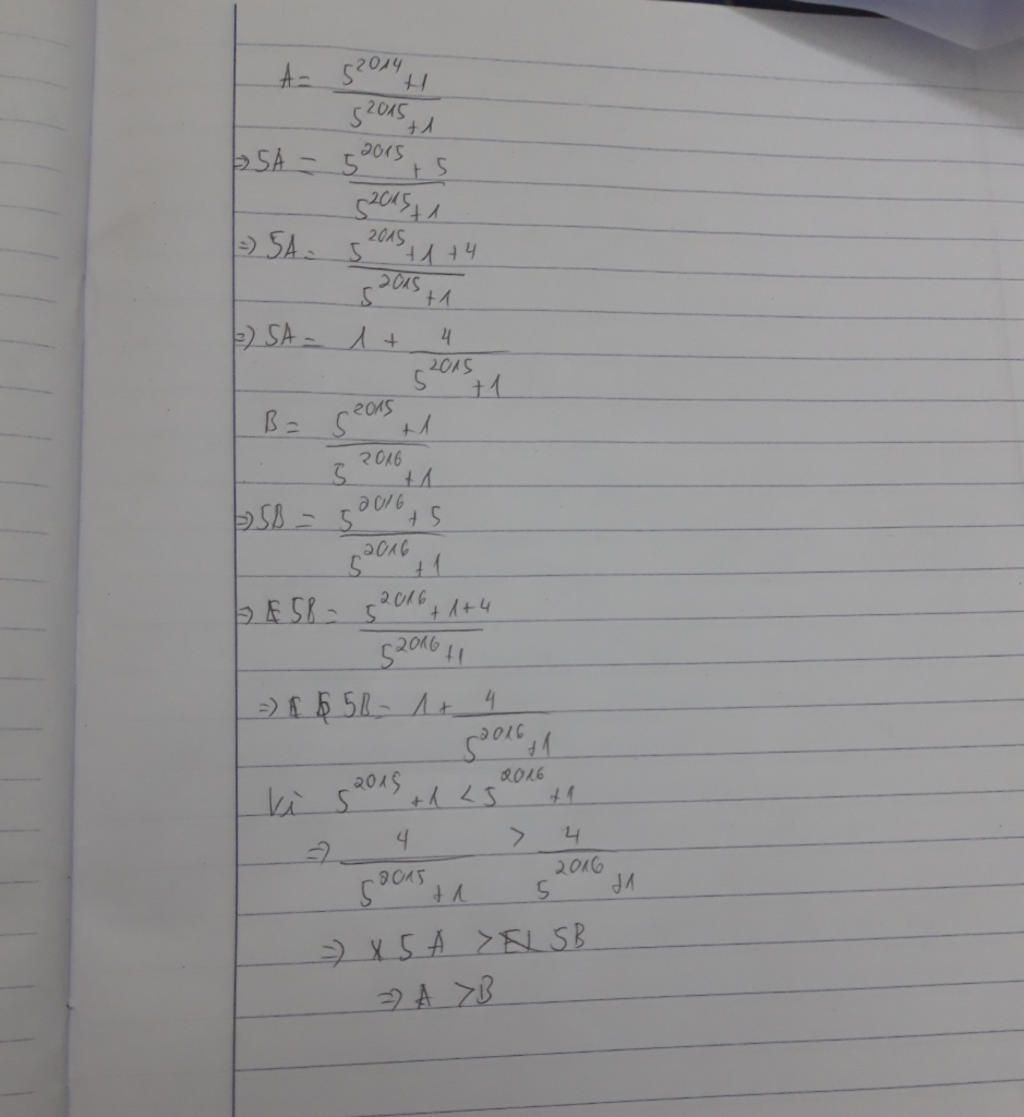 A = \frac{5^{2014}+1}{5^{2015}+1}
=> 5A = \frac{5^{2015}+5}{5^{2015}+1}
=> 5A = \frac{5^{2015}+1+4}{5^{2015}+1}
=> 5A = 1 + \frac{4}{5^{2015}+1}
B = \frac{5^{2015}+1}{5^{2016}+1}
=> 5B = \frac{5^{2016}+5}{5^{2016}+1}
=> 5B = \frac{5^{2016}+1+4}{5^{2016}+1}
=> 5B = 1 + \frac{4}{5^{2016}+1}
Vì 5^{2015}+1 < 5^{2016}+1
=> \frac{4}{5^{2015}+1} > \frac{4}{5^{2016}+1}
=> 5A > 5B
=> A > B